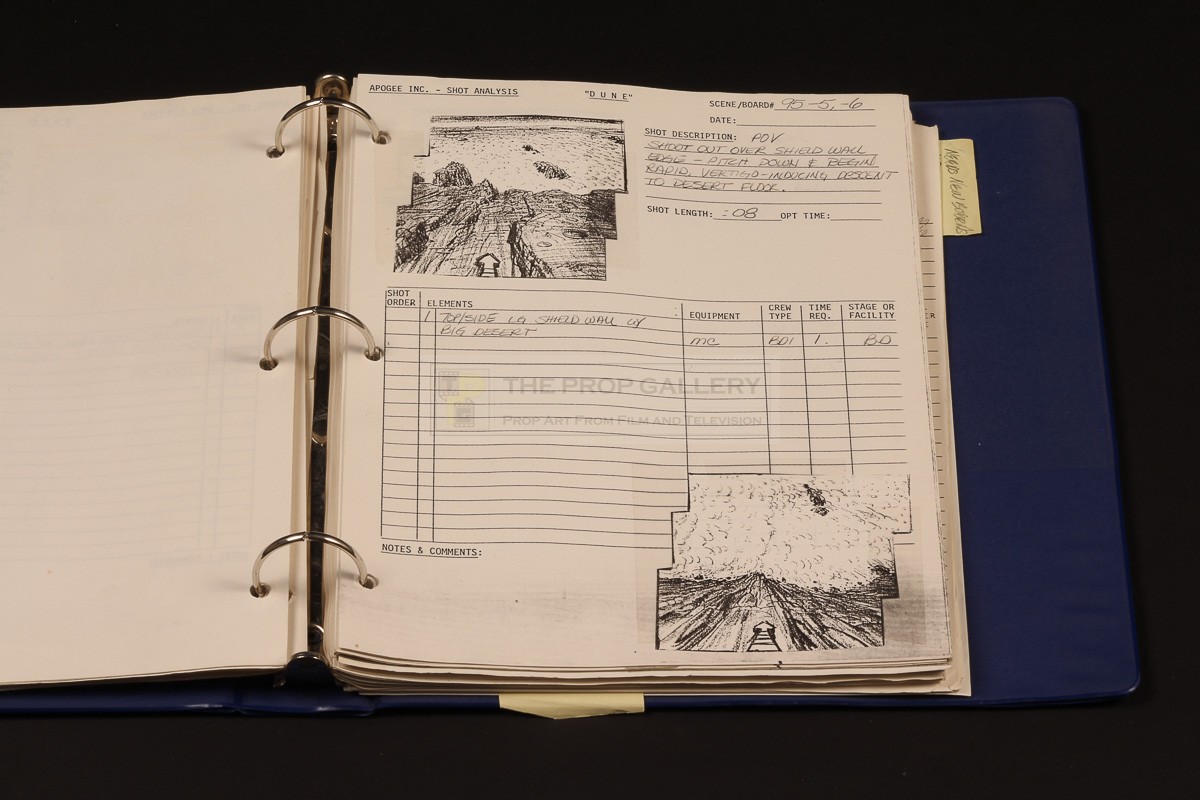 APOGEE INC. - SHOT ANALYSIS
"D U N E"
SCENE/BOARD# 95-5, -6
DATE:
SHOT DESCRIPTION: POV
SHOOT OUT OVER SHIELD WALL
EDGE - PITCH DOWN & BEGIN
RAPID, VERTIGO-INDUCING DESCENT
TO DESERT FLOOR.
SHOT LENGTH: :08 OPT TIME:
NEED NEW BOARDS
SHOT ORDER
ELEMENTS
EQUIPMENT
CREW TYPE
TIME REQ.
STAGE OR FACILITY
1 TOP/SIDE LG SHIELD WALL W/
BIG DESERT
MC BD1 1. BD
THE PROP GALLERY
PROP ART FROM FILM AND TELEVISION
NOTES & COMMENTS: